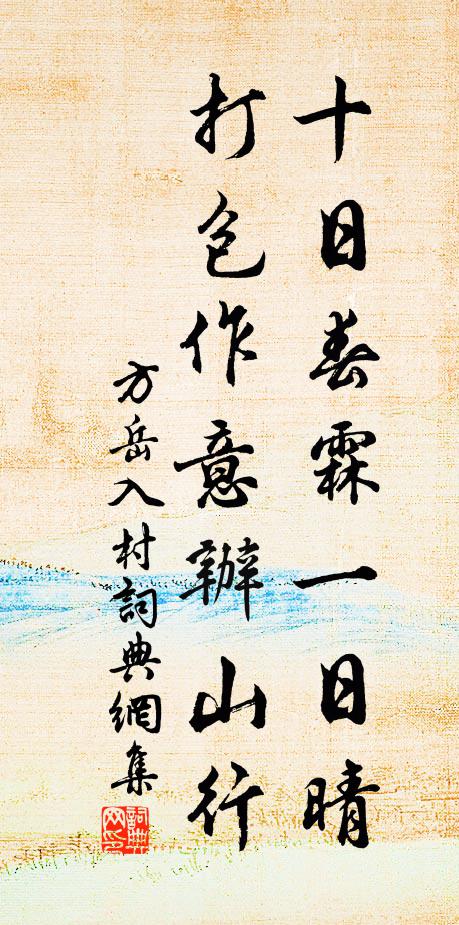 十日春霖一日晴
打包作意辦山行
方岳入村詞典網集
詞典网印